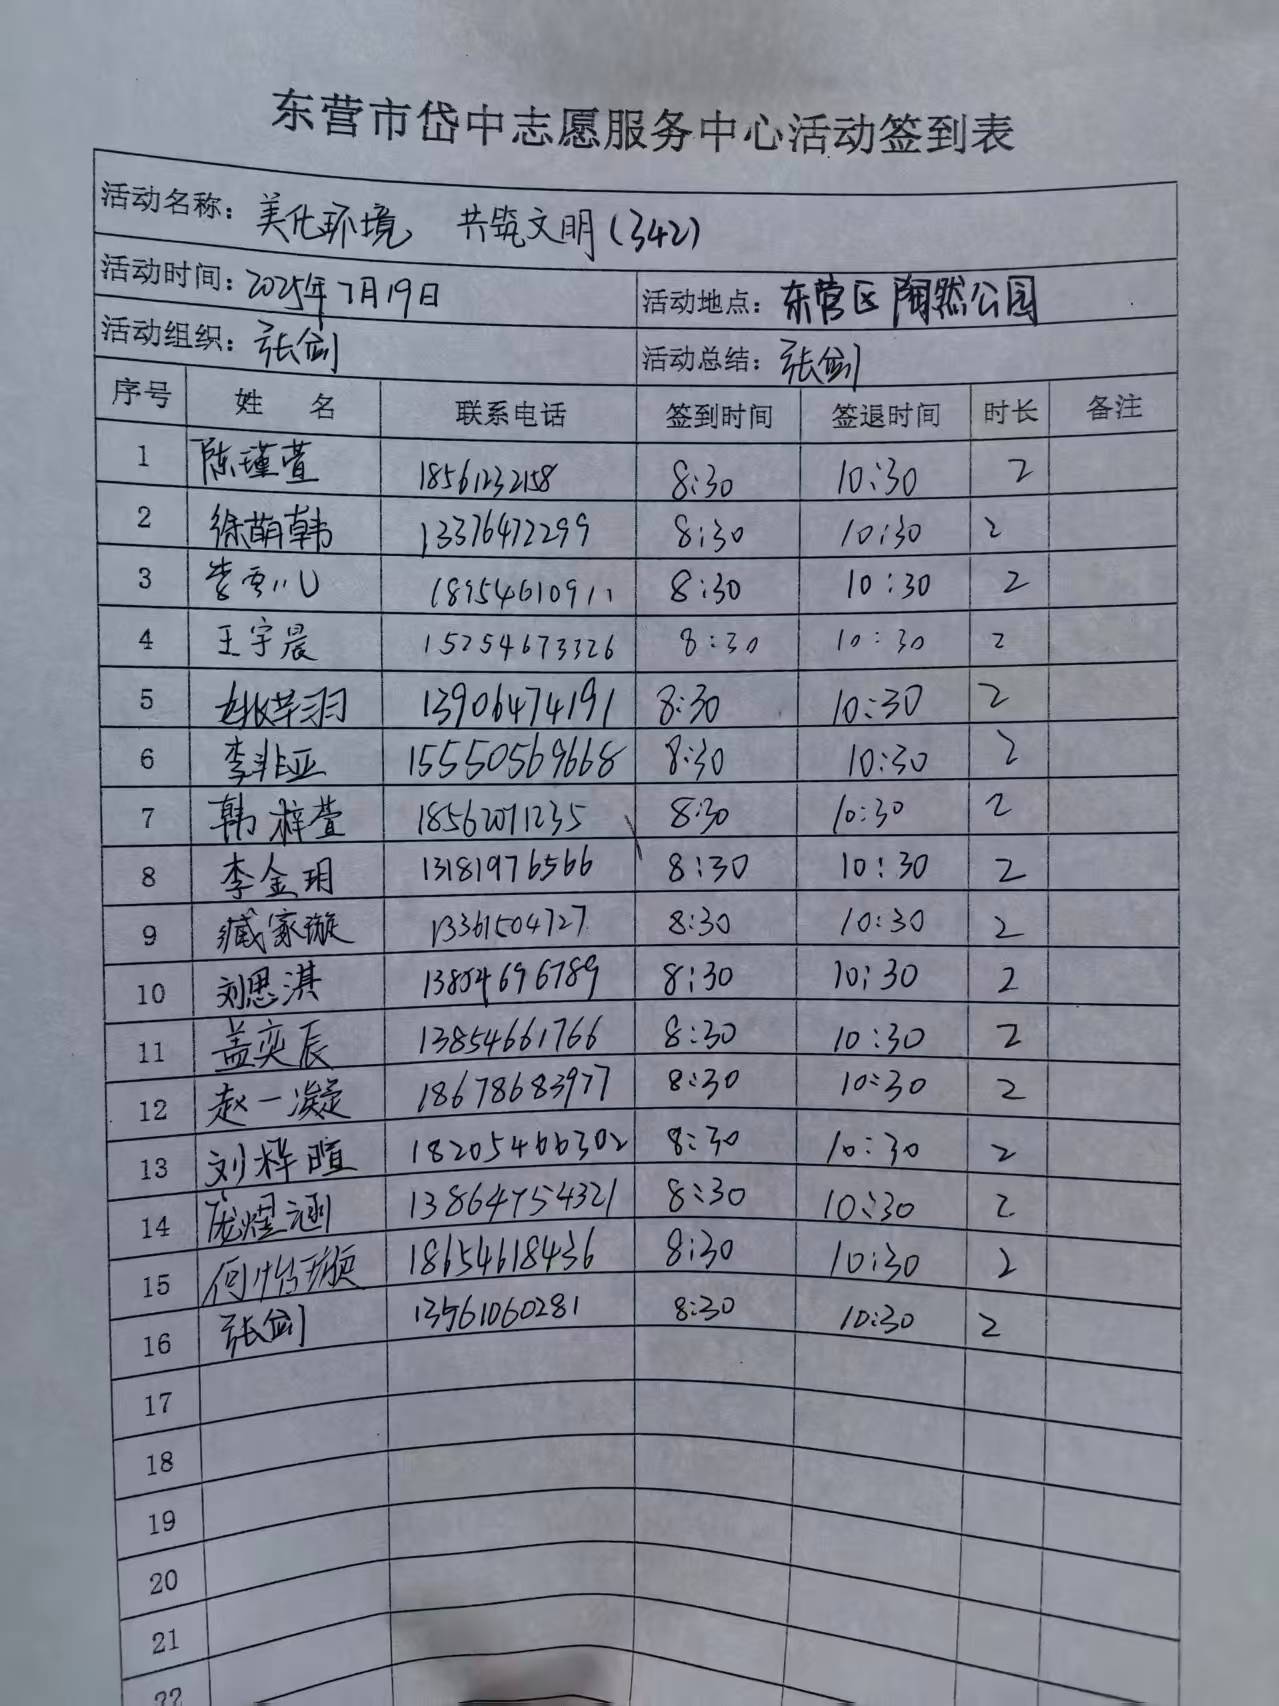 东营市岱中志愿服务中心活动签到表
活动名称：美化环境 共筑文明（342）
活动时间：2025年7月19日 活动地点：东营区陶然公园
活动组织：张剑 活动总结：张剑
序号 姓 名 联系电话 签到时间 签退时间 时长 备注
1 陈瑾萱 18561232158 8:30 10:30 2
2 徐萌韩 13376472299 8:30 10:30 2
3 18954610911 8:30 10:30 2
4 王宇晨 15254673326 8:30 10:30 2
5 姚芊羽 13906474191 8:30 10:30 2
6 李非亚 15550569668 8:30 10:30 2
7 韩梓萱 18562071235 8:30 10:30 2
8 李金玥 13181976566 8:30 10:30 2
9 臧家璇 13361504727 8:30 10:30 2
10 刘思淇 13854696789 8:30 10:30 2
11 盖奕辰 13854661766 8:30 10:30 2
12 赵一凝 18678683977 8:30 10:30 2
13 刘梓暄 18205466302 8:30 10:30 2
14 庞煜涵 13864754321 8:30 10:30 2
15 何怡璇 18654618436 8:30 10:30 2
16 张剑 13561060281 8:30 10:30 2
17
18
19
20
21
22